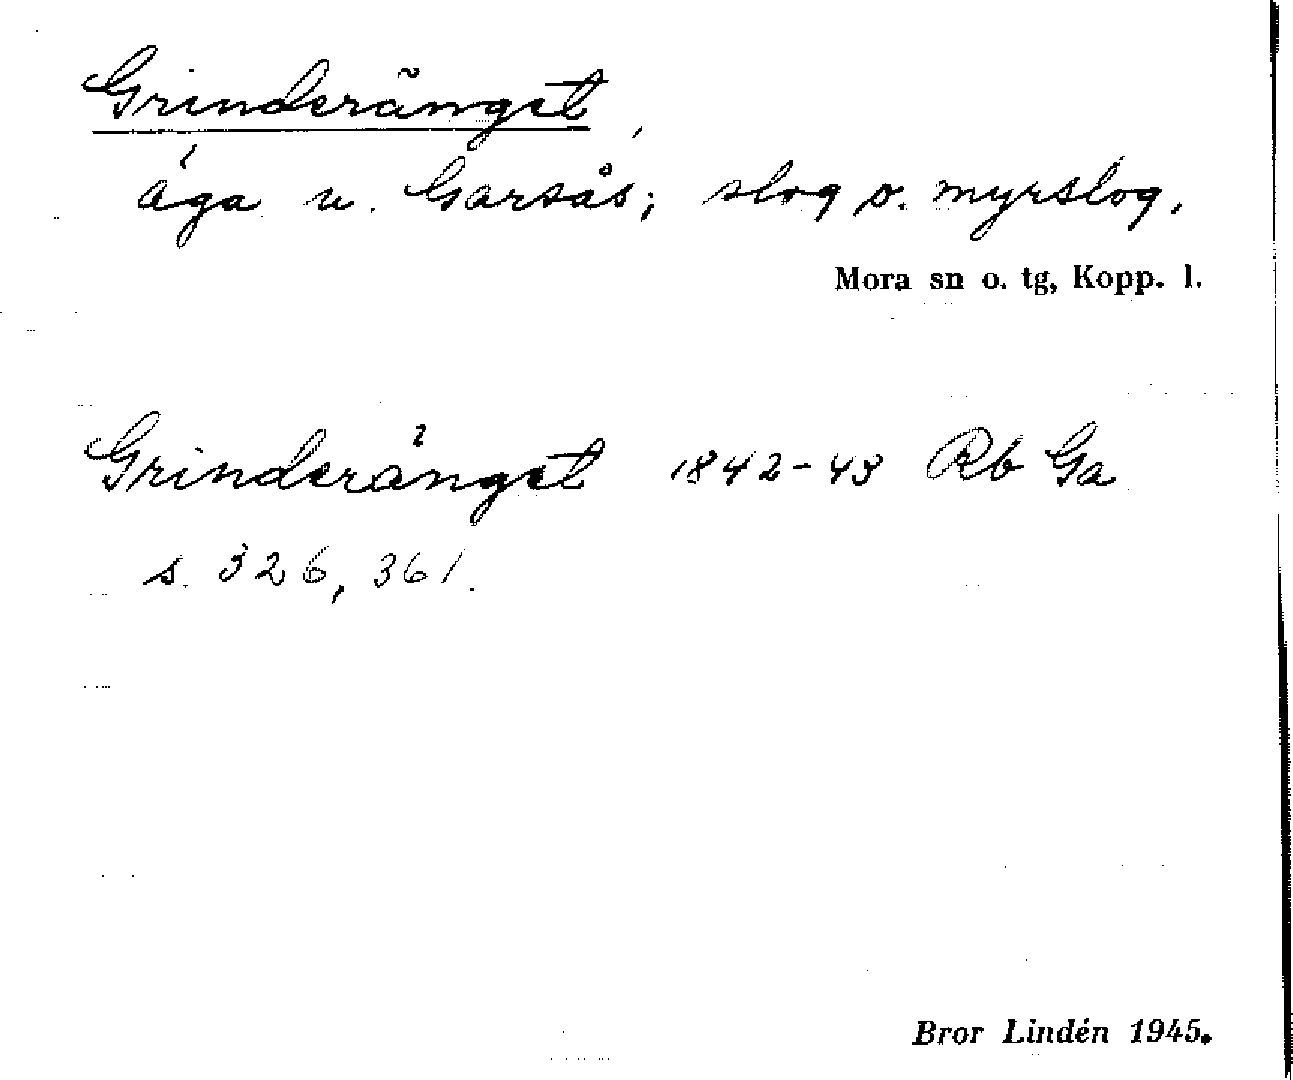 Grinderänget,
äga u. Garsås; slog o. myrslog.
Mora sn o. tg, Kopp. l.
Grinderänget 1842-43 Rb Ga
s. 326, 361.
Bror Lindén 1945.